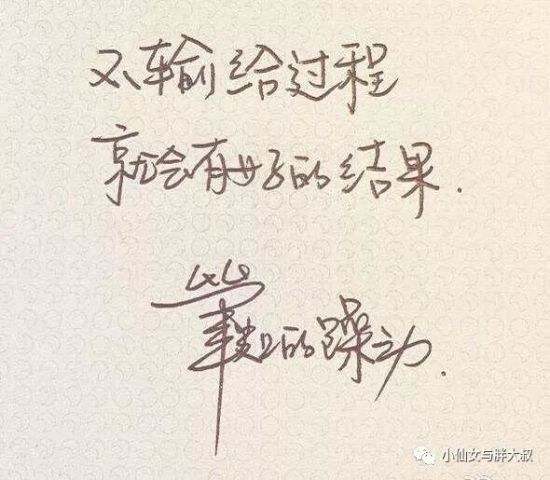 不输给过程
就会有好的结果.
的躁动.
小仙女与胖大叔